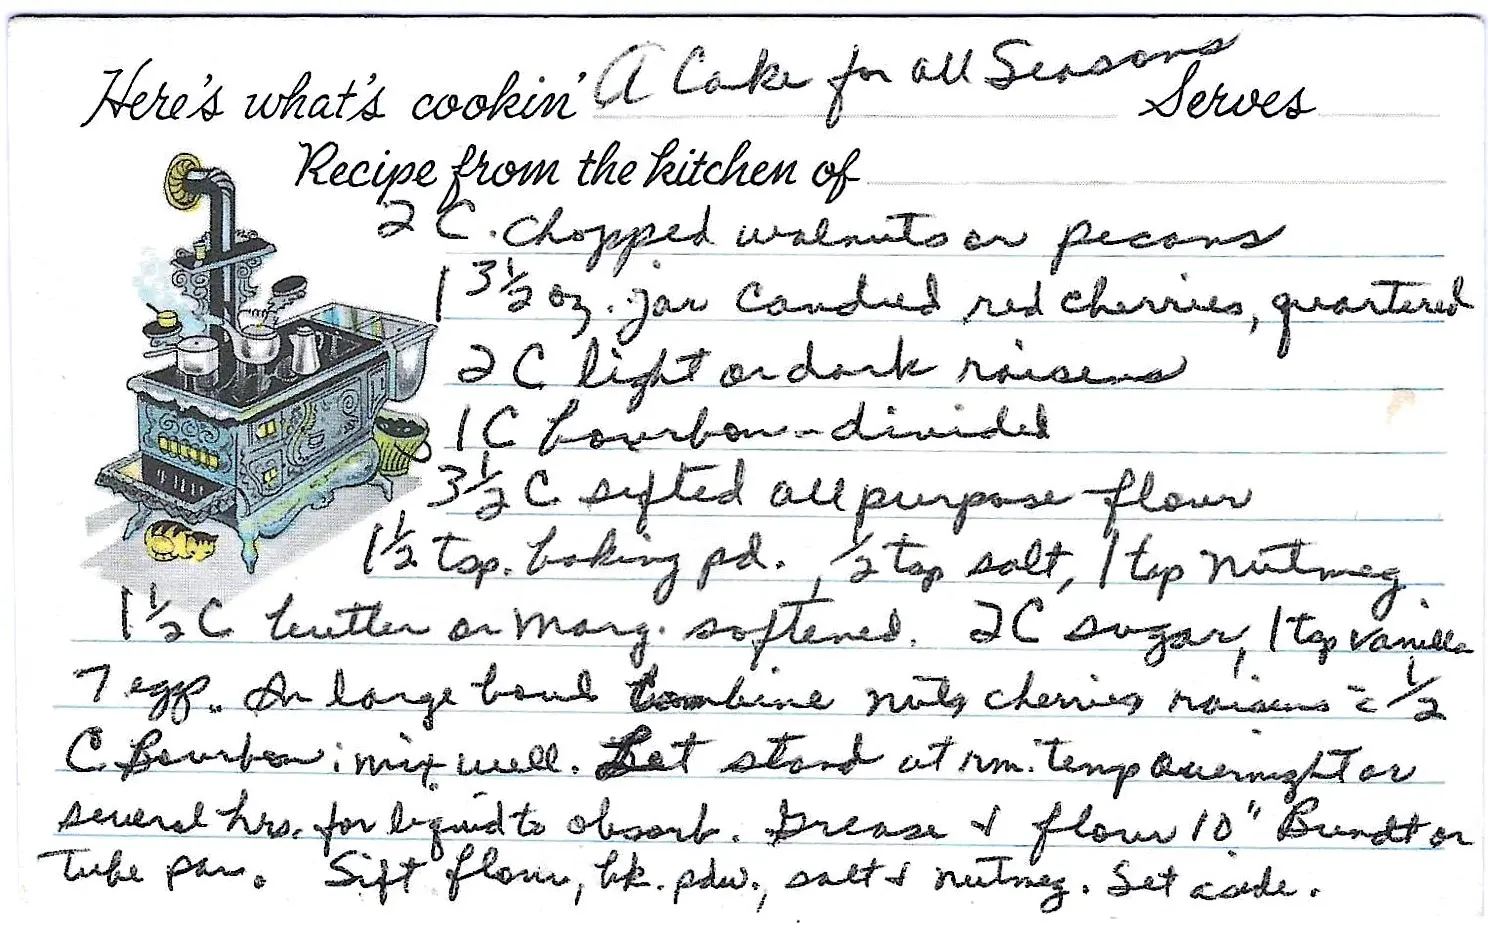 Here's what's cookin' A Cake for all Seasons Serves
Recipe from the kitchen of
2 C. chopped walnuts or pecans
1 3 1/2 oz. jar candied red cherries, quartered
2 C light or dark raisens
1 C bourbon - divided
3 1/2 C sifted all purpose flour
1 1/2 tsp. baking pd., 1/2 tsp salt, 1 tsp nutmeg
1 1/2 C butter or marg. softened. 2C sugar, 1 tsp vanilla
7 eggs.. In large bowl combine nuts cherries raisins c̄ 1/2
C Bourbon; mix well. Let stand at rm. temp overnight or
several hrs. for liquid to absorb. Grease & flour 10" Bundt or
Tube pan. Sift flour, bk. pdw., salt & nutmeg. Set aside.